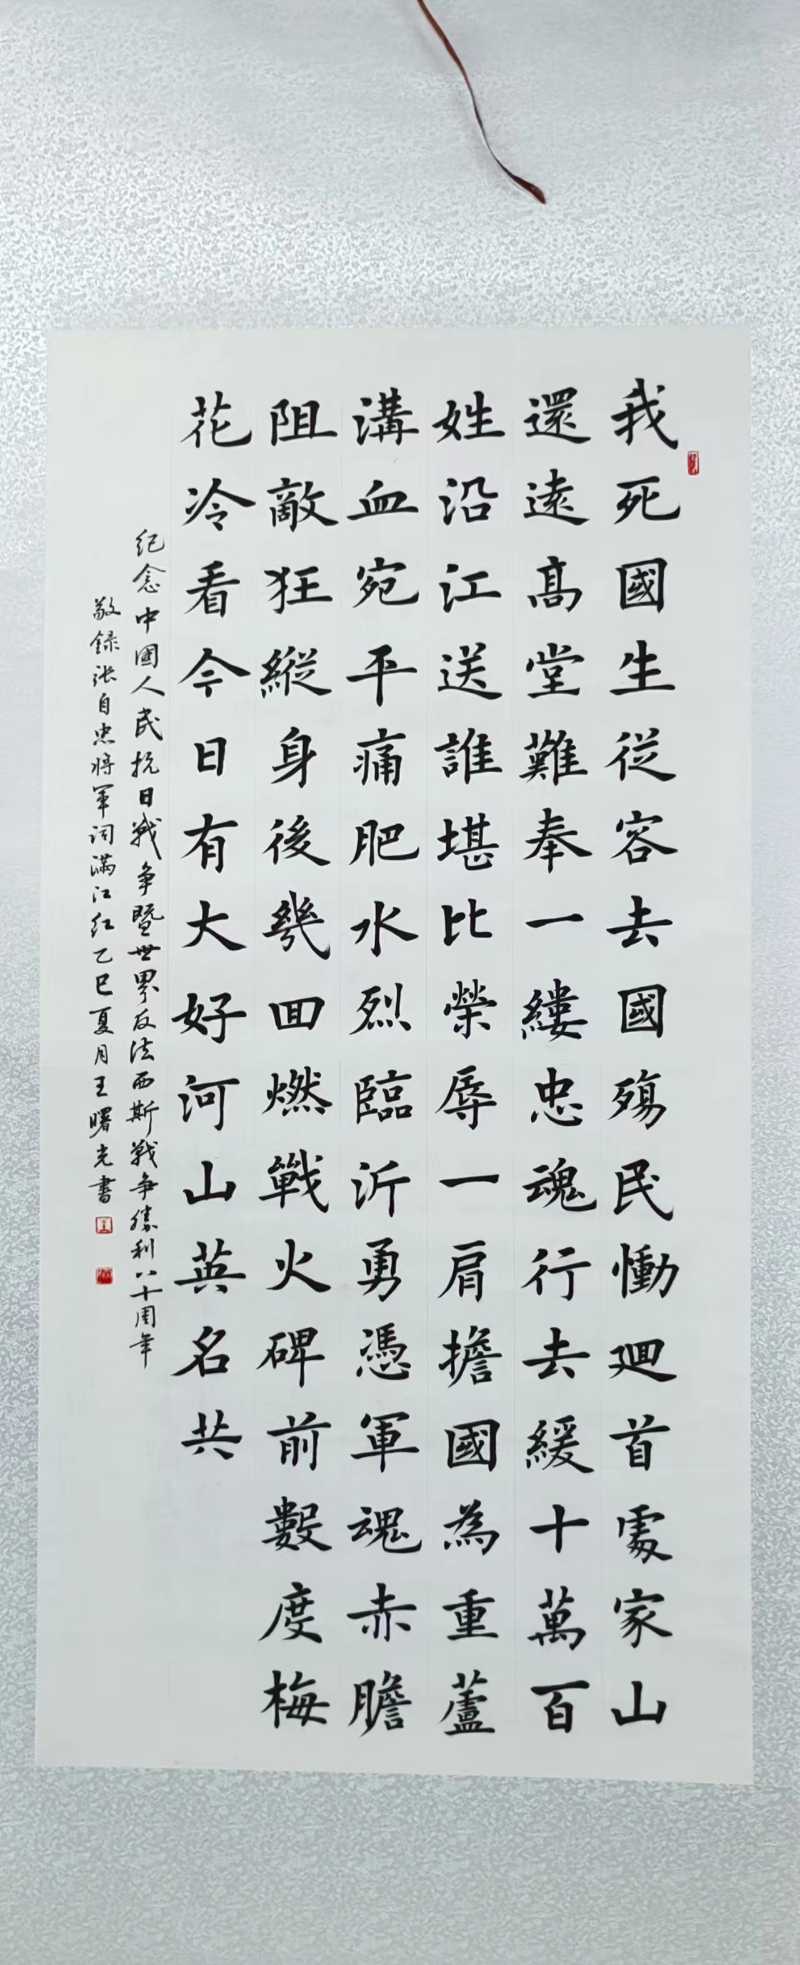 我死國生從容去國殤民慟廻首處家山
還遠高堂難奉一縷忠魂行去緩十萬百
姓沿江送誰堪比榮辱一肩擔國為重蘆
溝血宛平痛肥水烈臨沂勇憑軍魂赤膽
阻敵狂縱身後幾回燃戰火碑前數度梅
花冷看今日有大好河山英名共
纪念中國人民抗日战争暨世界反法西斯战争勝利八十周年
敬録张自忠将军词满江红乙巳夏月王曙光書